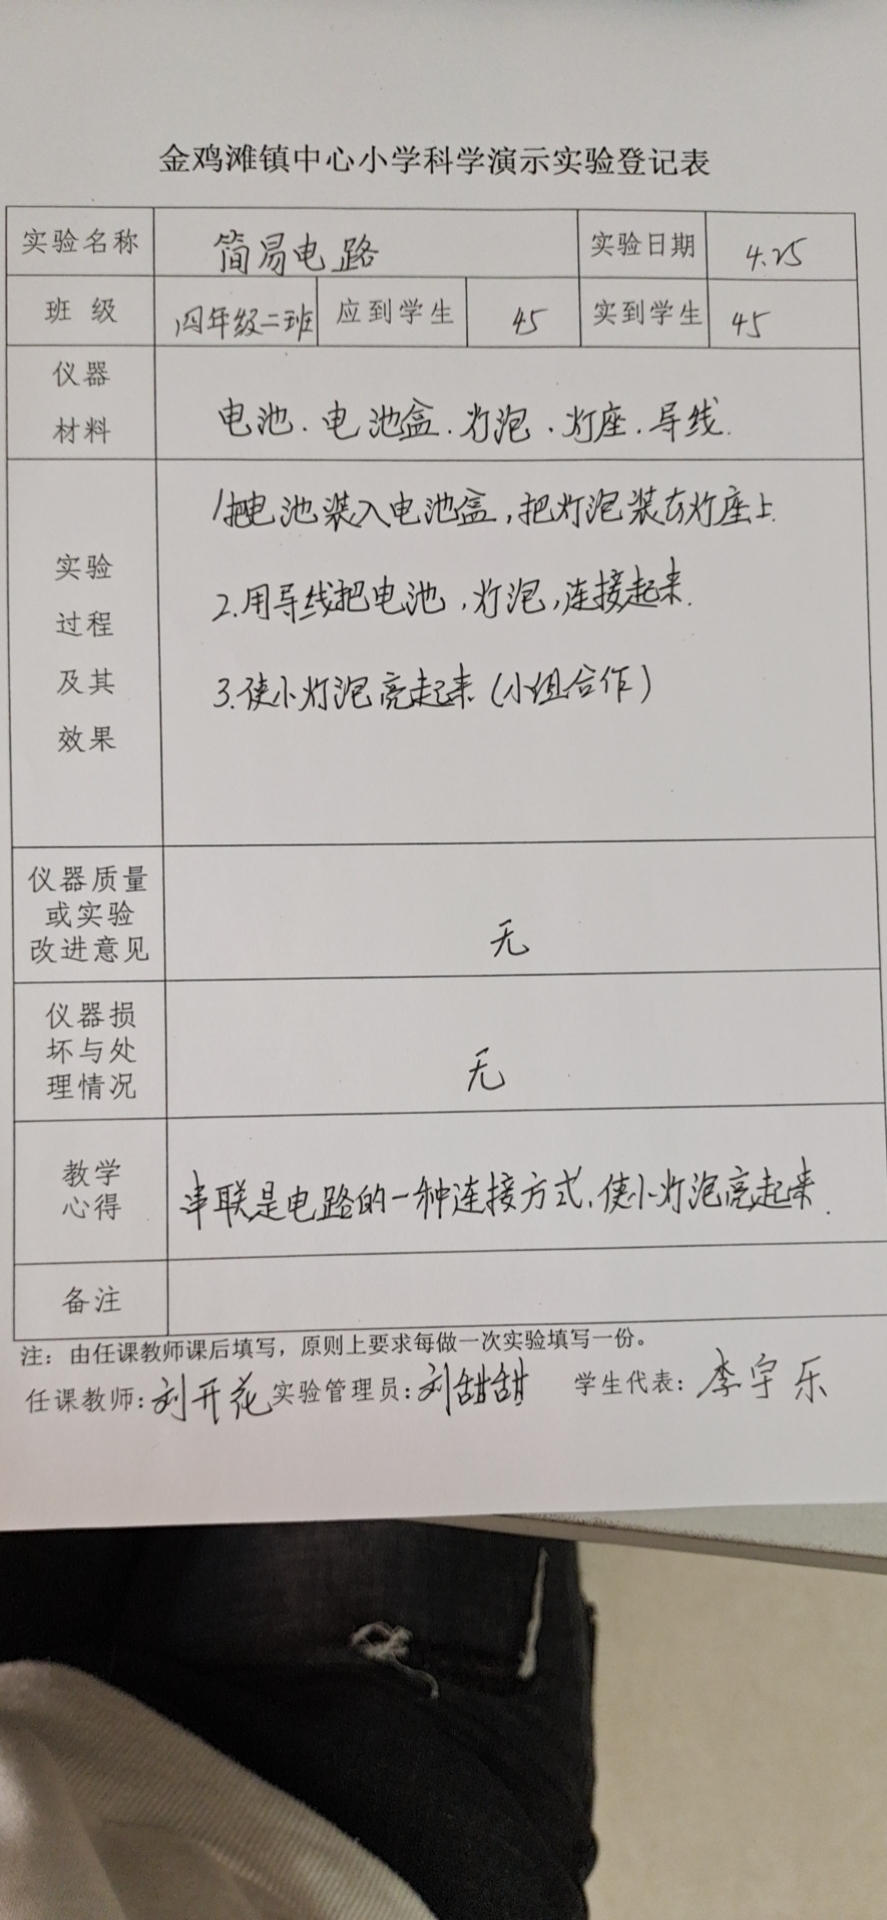 金鸡滩镇中心小学科学演示实验登记表
实验名称 简易电路 实验日期 4.25
班 级 四年级二班 应到学生 45 实到学生 45
仪器
材料
电池.电池盒.灯泡.灯座.导线.
实验
过程
及其
效果
1把电池装入电池盒,把灯泡装在灯座上.
2.用导线把电池,灯泡,连接起来.
3.使小灯泡亮起来(小组合作)
仪器质量
或实验
改进意见
无
仪器损
坏与处
理情况
无
教学
心得
串联是电路的一种连接方式,使小灯泡亮起来.
备注
注：由任课教师课后填写，原则上要求每做一次实验填写一份。
任课教师：刘开花 实验管理员：刘甜甜 学生代表：李宇乐